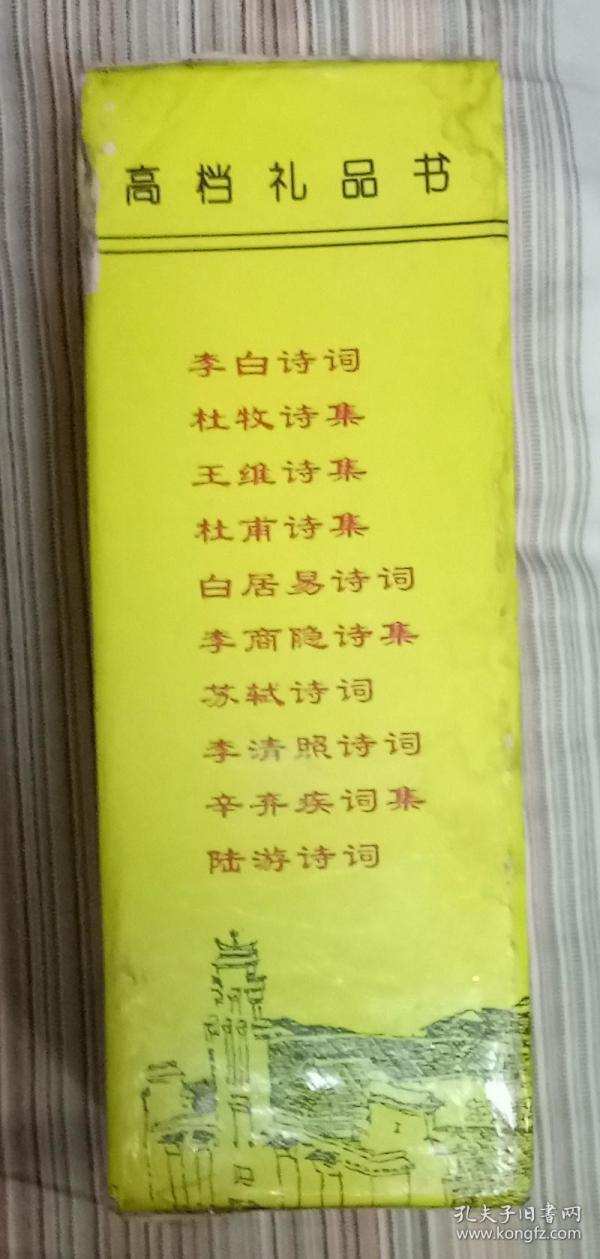 高档礼品书
李白诗词
杜牧诗集
王维诗集
杜甫诗集
白居易诗词
李商隐诗集
苏轼诗词
李清照诗词
辛弃疾词集
陆游诗词
孔夫子旧书网
www.kongfz.com